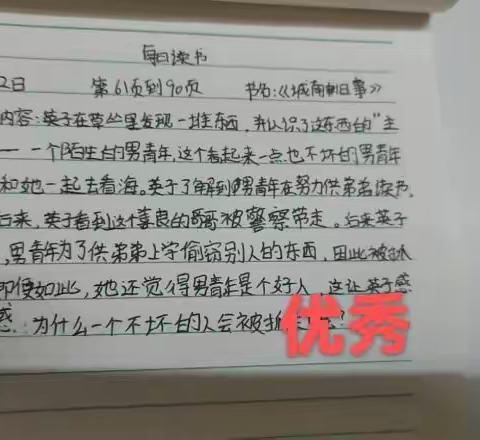 每日读书
2日 第61页到90页 书名:《城南旧事》
内容:英子在草丛里发现一堆东西,并认识了这东西的"主
一一个陌生的男青年,这个看起来一点也不坏的男青年
和她一起去看海。英子了解到男青年在努力供弟弟读书。
后来,英子看到这个善良的哥哥被警察带走。后来英子
,男青年为了供弟弟上学偷窃别人的东西,因此被抓
即便如此,她还觉得男青年是个好人,这让英子感
惑:为什么一个不坏的人会被抓
优秀